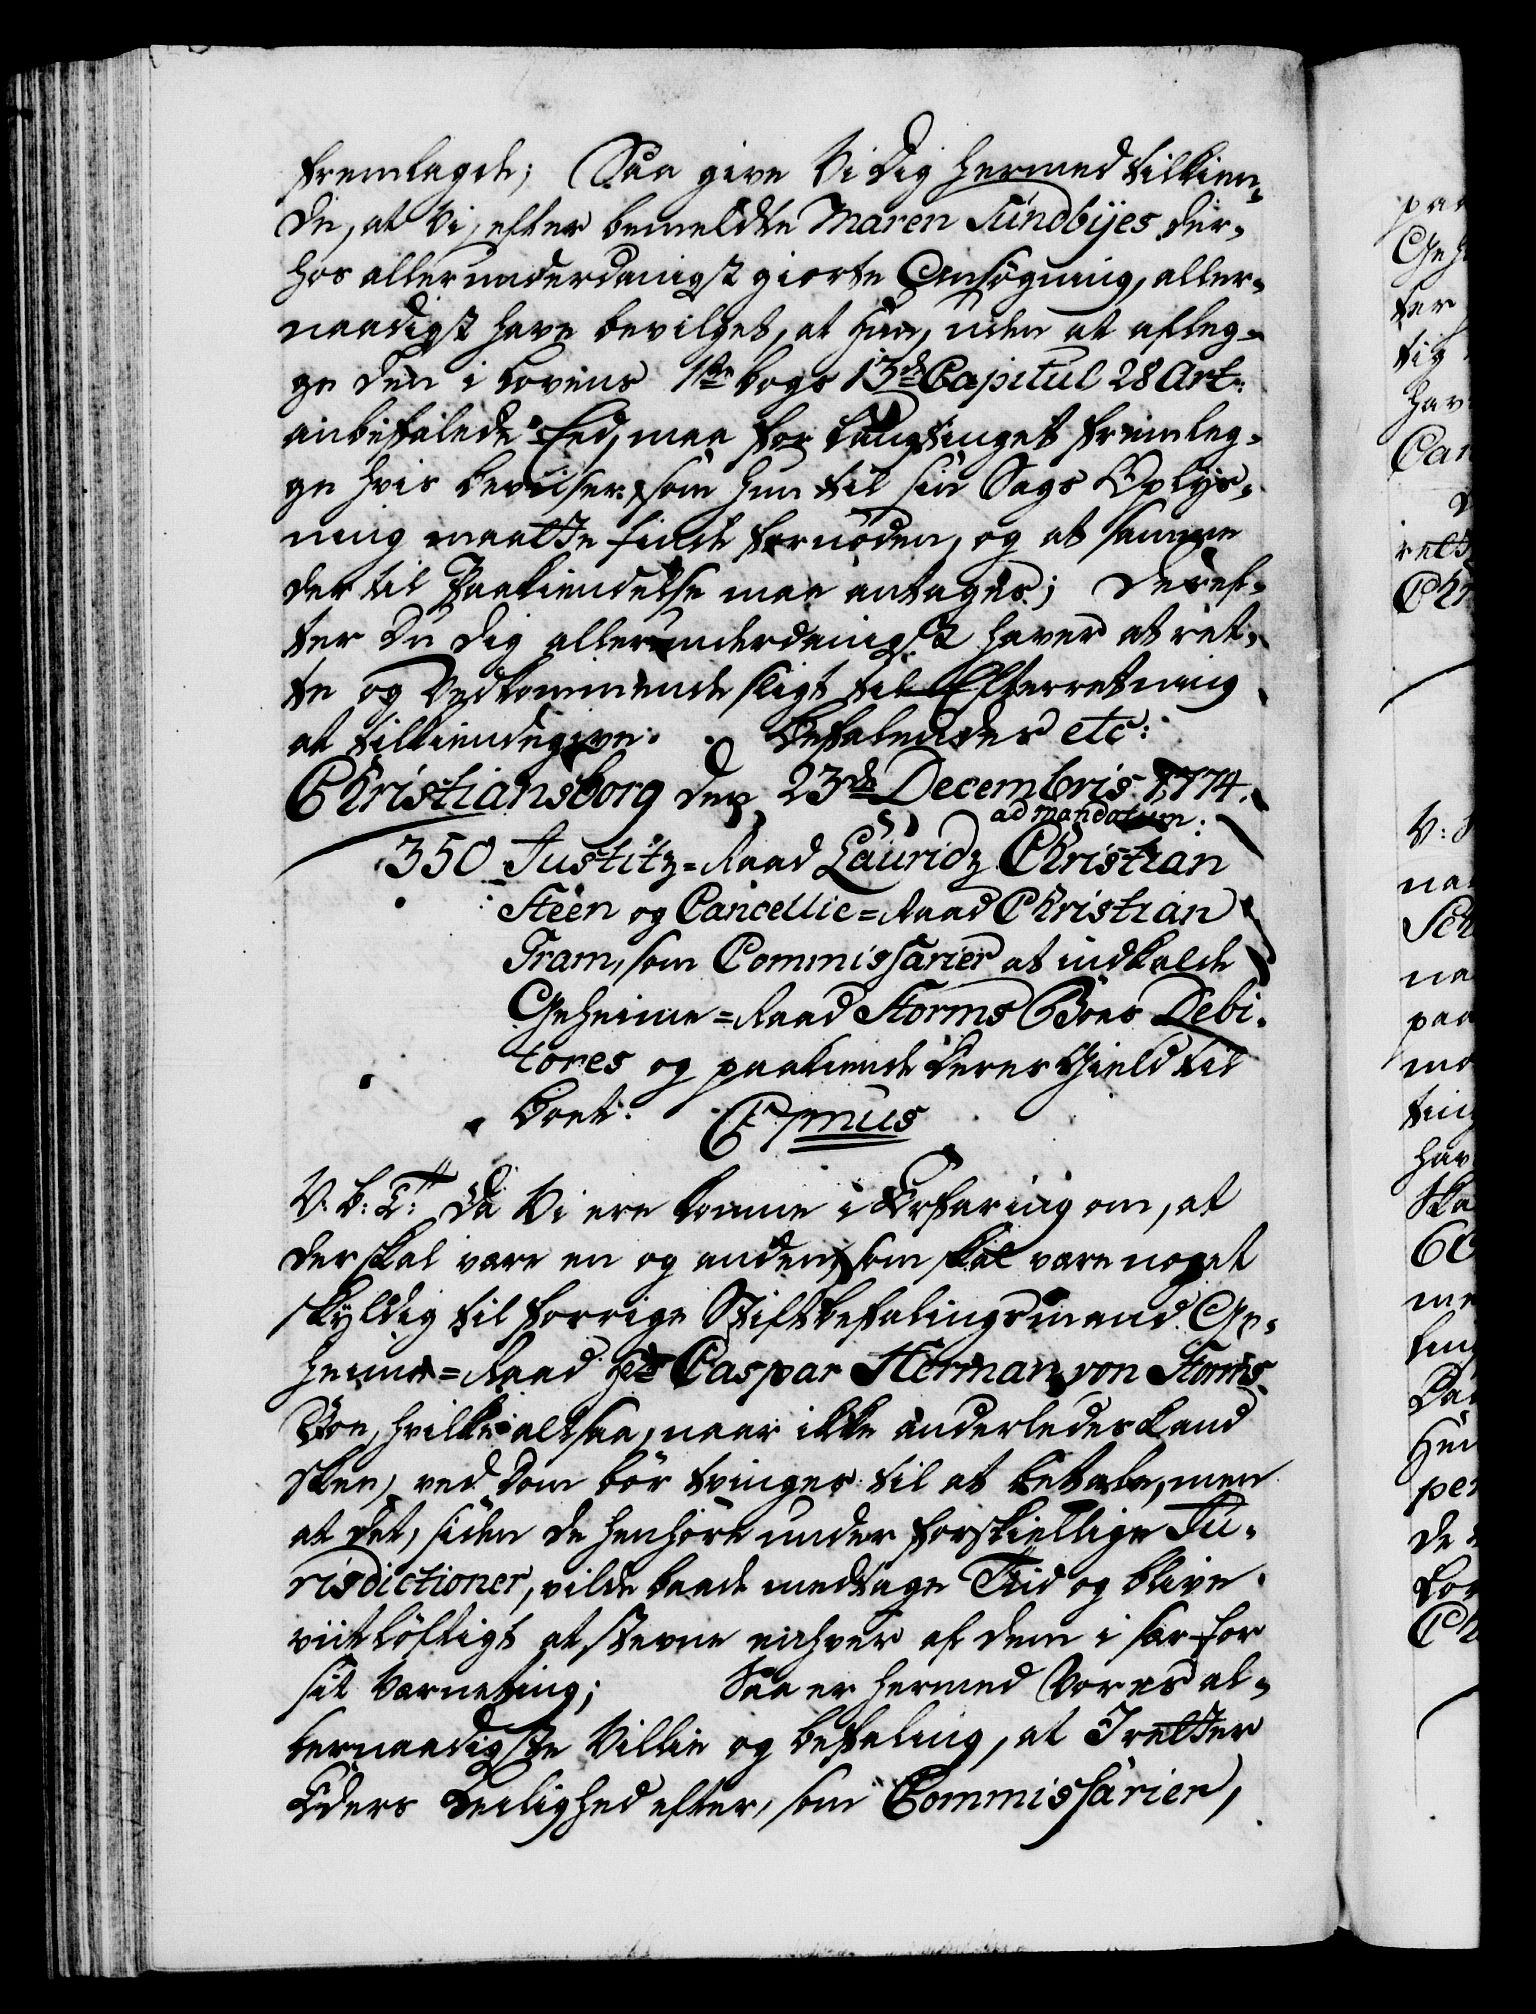 fremlagde; Saa give Vi Dig hermed tilkien-
de, at Vi, efter bemeldte Maren Sundbÿes der-
hos allerunderdanigst giorte Ansøgning, aller-
naadigst have bevilget, at hun, uden at afleg-
ge den i Lovens 1ste Bogs 13de Capitul 28 Art:
anbefalede Eed, maa for Laugtinget fremleg-
ge hvis Beviiser, som hun til sin Sags Oplys-
ning maatte finde fornøden, og at samme
der til Paakiendelse maa antages; Deref-
ter Du Dig allerunderdanigst haver at ret-
te og Vedkommende sligt til Efterretning
at tilkiendegive. Befalendes etc:
Christiansborg den 23de Decembris 1774.
ad mandatum:
350 Justitz-Raad Lauridz Christian
Steen og Cancellie-Raad Christian
Fram, som Commissarier at indkalde
Geheime-Raad Storms Boes Debi-
tores og paakiende deres Gield til
Boet.
V. b: G: Da Vi ere komne i Erfaring om, at
der skal være en og anden, som skal være noget
skyldig til forrige Stiftbefalingsmand Ge-
heime-Raad Caspar Herman von Storms
Boe, hvilke altsaa, naar ikke anderledes kand
skee, ved Dom bør tvinges til at betale, men
at det, siden de henhøre under forskiellige Ju-
risdictioner, vilde baade medtage Tiid og blive
viitløftigt at stevne enhver af dem i sær for
sit Værneting; Saa er hermed Vores al-
lernaadigste Villie og Befaling, at I retter
Eders Leilighed efter, som Commissarier,